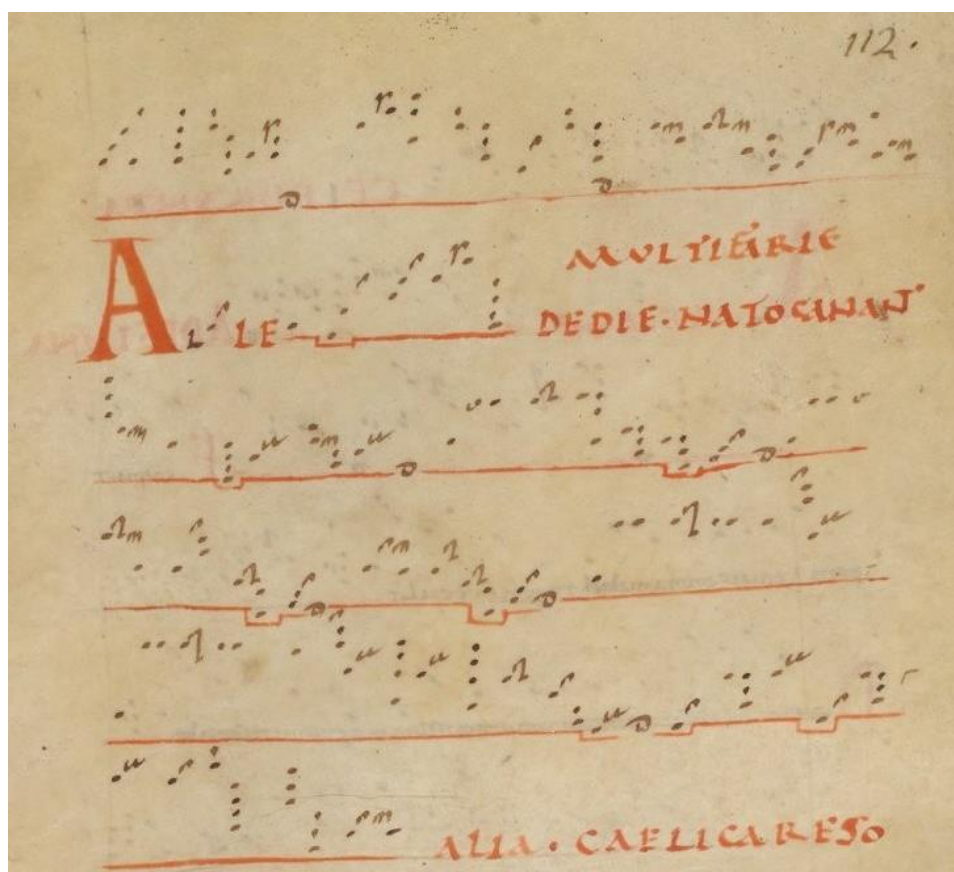 112.
ALLE MVLTIFARIE
DEDIE·NATOCANANT
ALIA · CAELICARESO